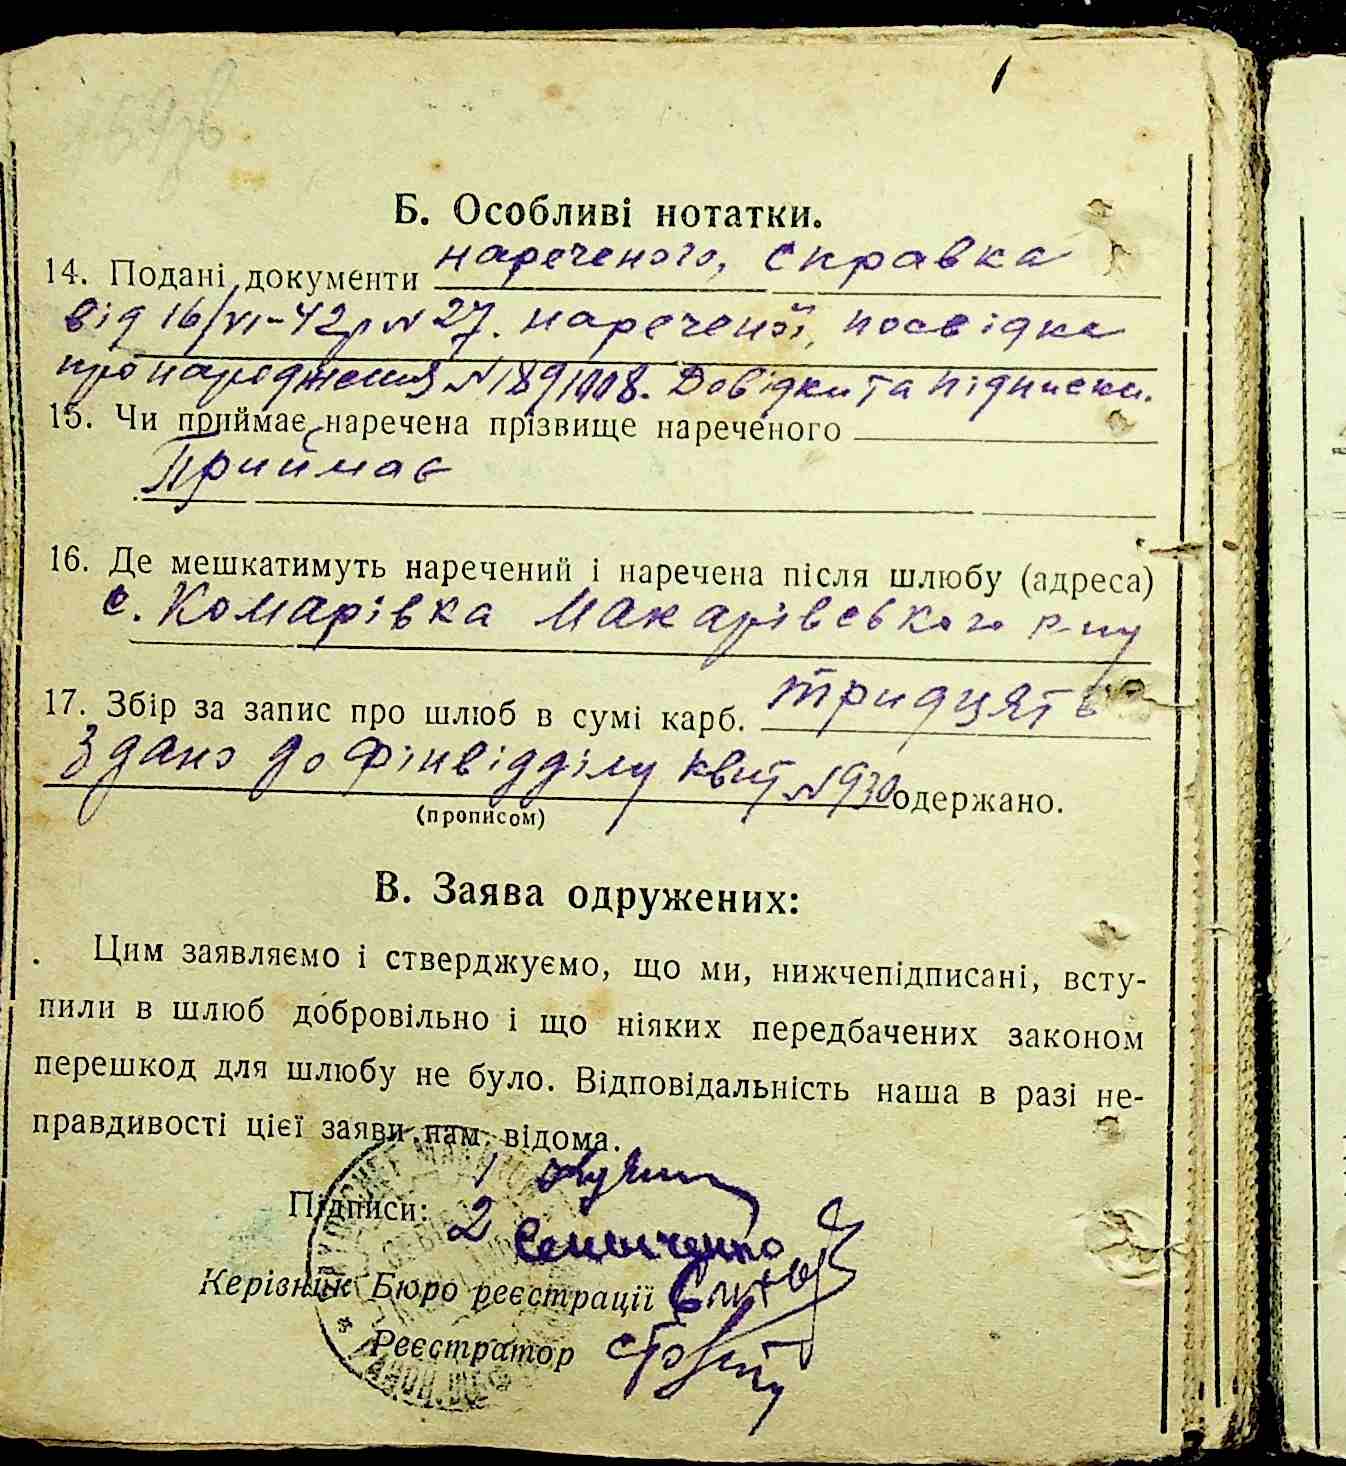 1
Б. Особливі нотатки.
14. Подані документи нареченого, справка
від 16/VI-42р №27. нареченої, посвідка
про народження №1891908. Довідки та підписки.
15. Чи приймає наречена прізвище нареченого
Приймає
16. Де мешкатимуть наречений і наречена після шлюбу (адреса)
с. Комарівка Макарівського р-ну
17. Збір за запис про шлюб в сумі карб. тридцять
Здано до Фінвідділу квит №930 одержано.
(прописом)
В. Заява одружених:
Цим заявляємо і стверджуємо, що ми, нижчепідписані, всту-
пили в шлюб добровільно і що ніяких передбачених законом
перешкод для шлюбу не було. Відповідальність наша в разі не-
правдивості цієї заяви нам відома.
Підписи: 1
2 Семенченко
Керівник Бюро реєстрації
Реєстратор